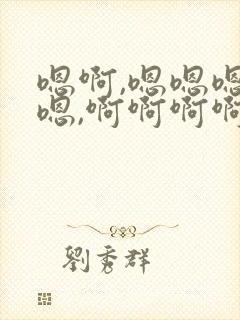 嗯啊,嗯嗯嗯
嗯,啊啊啊啊
劉秀群